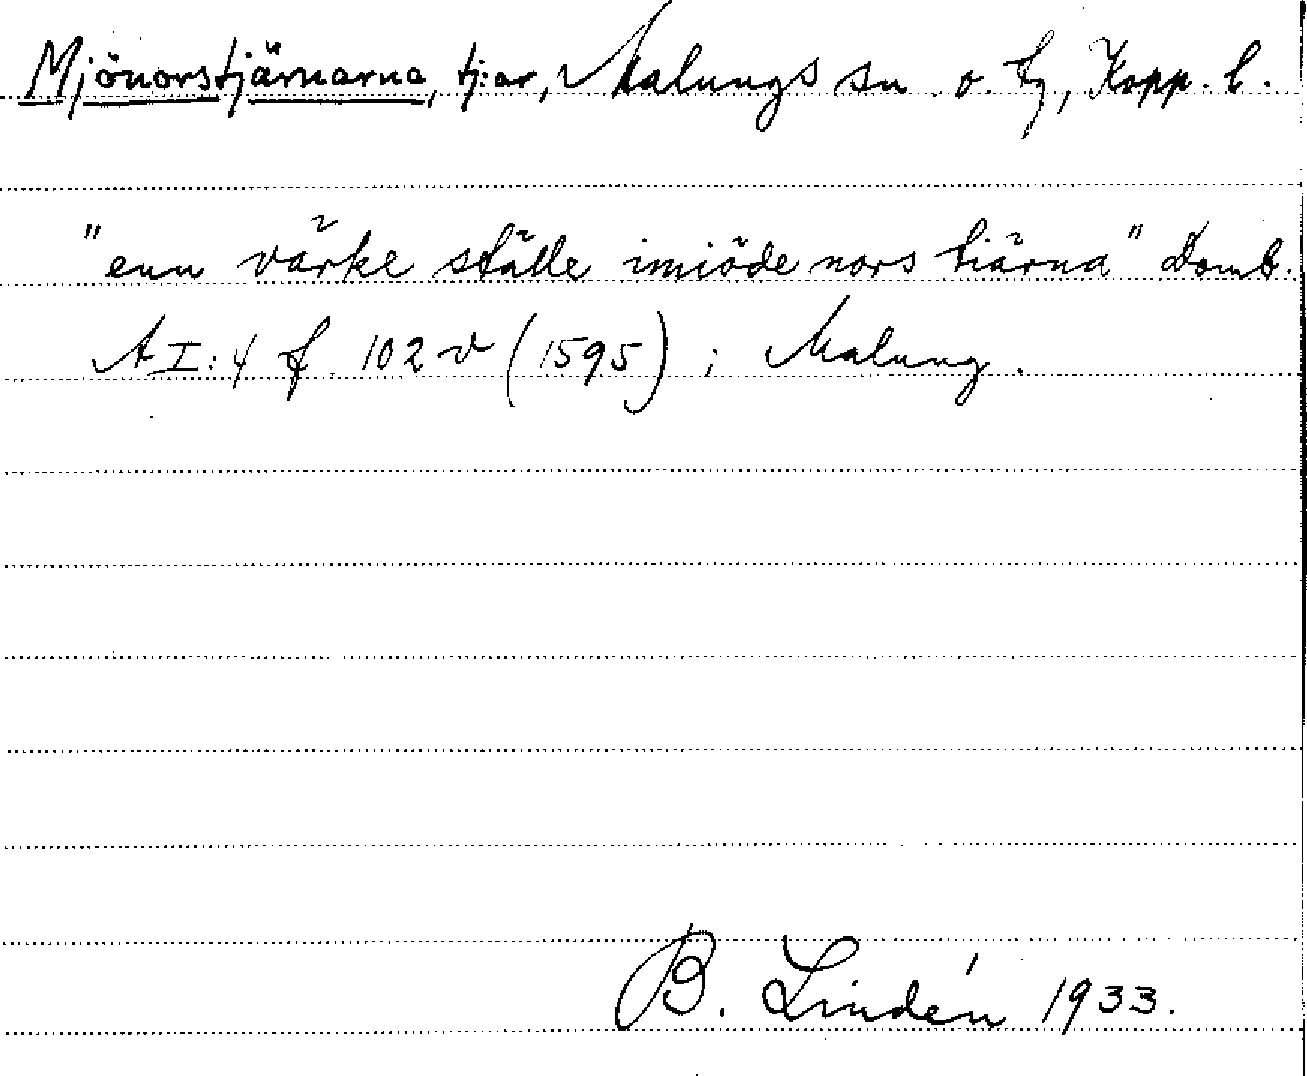 Mjönorstjärnarna, tj:ar, Malungs sn o. tg, Kopp. l.
"enn värke ställe imiöde nors tiärna" Domb.
A I:4 f. 102 v (1595); Malung.
B. Lindén 1933.